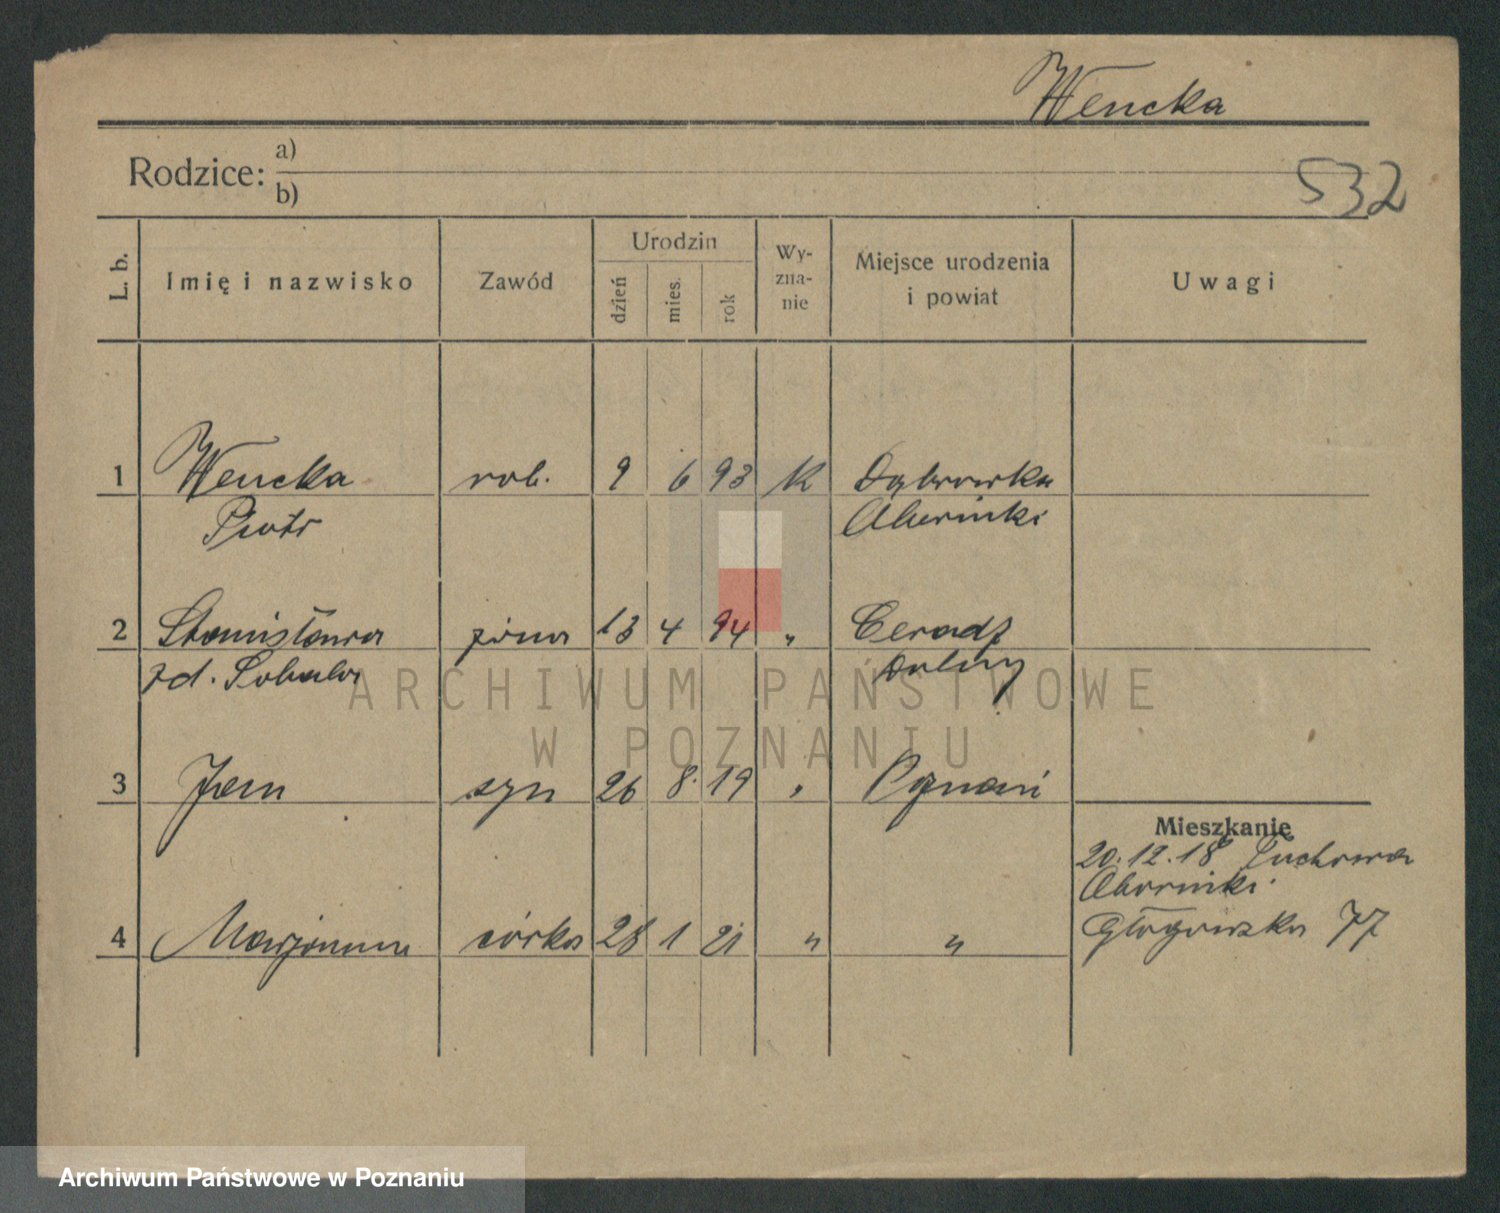 Wencka
532
Rodzice: a)
b)
L. b. Imię i nazwisko Zawód Urodzin dzień mies. rok Wy-zna-nie Miejsce urodzenia i powiat Uwagi
1 Wencka rob. 9 6 93 K Dąbrowka
Piotr Obornicki
2 Stanisława żona 13 4 94 " Ceradz
zd. Dolny
3 Jan syn 26 8. 19 " Poznań
Mieszkanie
20.12.18
Obornicki
4 Marjanna córka 28 1 21 " "
Głogowska 77
ARCHIWUM PAŃSTWOWE
W POZNANIU
Archiwum Państwowe w Poznaniu